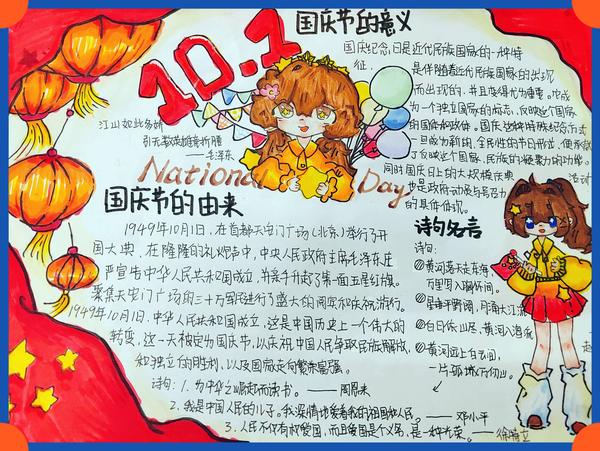 10.1
国庆节的意义
国庆纪念日是近代民族国家的一种特
征，是伴随着近代民族国家的出现
而出现的，并且变得尤为重要。它成
为一个独立国家的标志，反映这个国家
的国体和政体。国庆这种特殊纪念方式
一旦成为新的、全民性的节日形式，便承载
了反映这个国家、民族的凝聚力的功能。
同时国庆日上的大规模庆典活动
也是政府动员与号召力
的具体体现。
江山如此多娇
引无数英雄竞折腰
——毛泽东
National Day
国庆节的由来
1949年10月1日，在首都天安门广场（北京）举行了开
国大典，在隆隆的礼炮声中，中央人民政府主席毛泽东庄
严宣告中华人民共和国成立，并亲手升起了第一面五星红旗。
聚集天安门广场的三十万军民进行了盛大的阅兵和庆祝游行。
1949年10月1日，中华人民共和国成立，这是中国历史上一个伟大的
转变，这一天被定为国庆节，以庆祝中国人民争取民族解放
和独立的胜利，以及国家走向繁荣富强。
诗句：1.为中华之崛起而读书。——周恩来
2.我是中国人民的儿子。我深情地爱着我的祖国和人民。——邓小平
3.人民不仅有权爱国，而且爱国是个义务，是一种光荣。——徐特立
诗句名言
诗句：
黄河落天走东海
万里写入胸怀间。
星垂平野阔，月涌大江流
白日依山尽，黄河入海流
黄河远上白云间，
一片孤城万仞山。